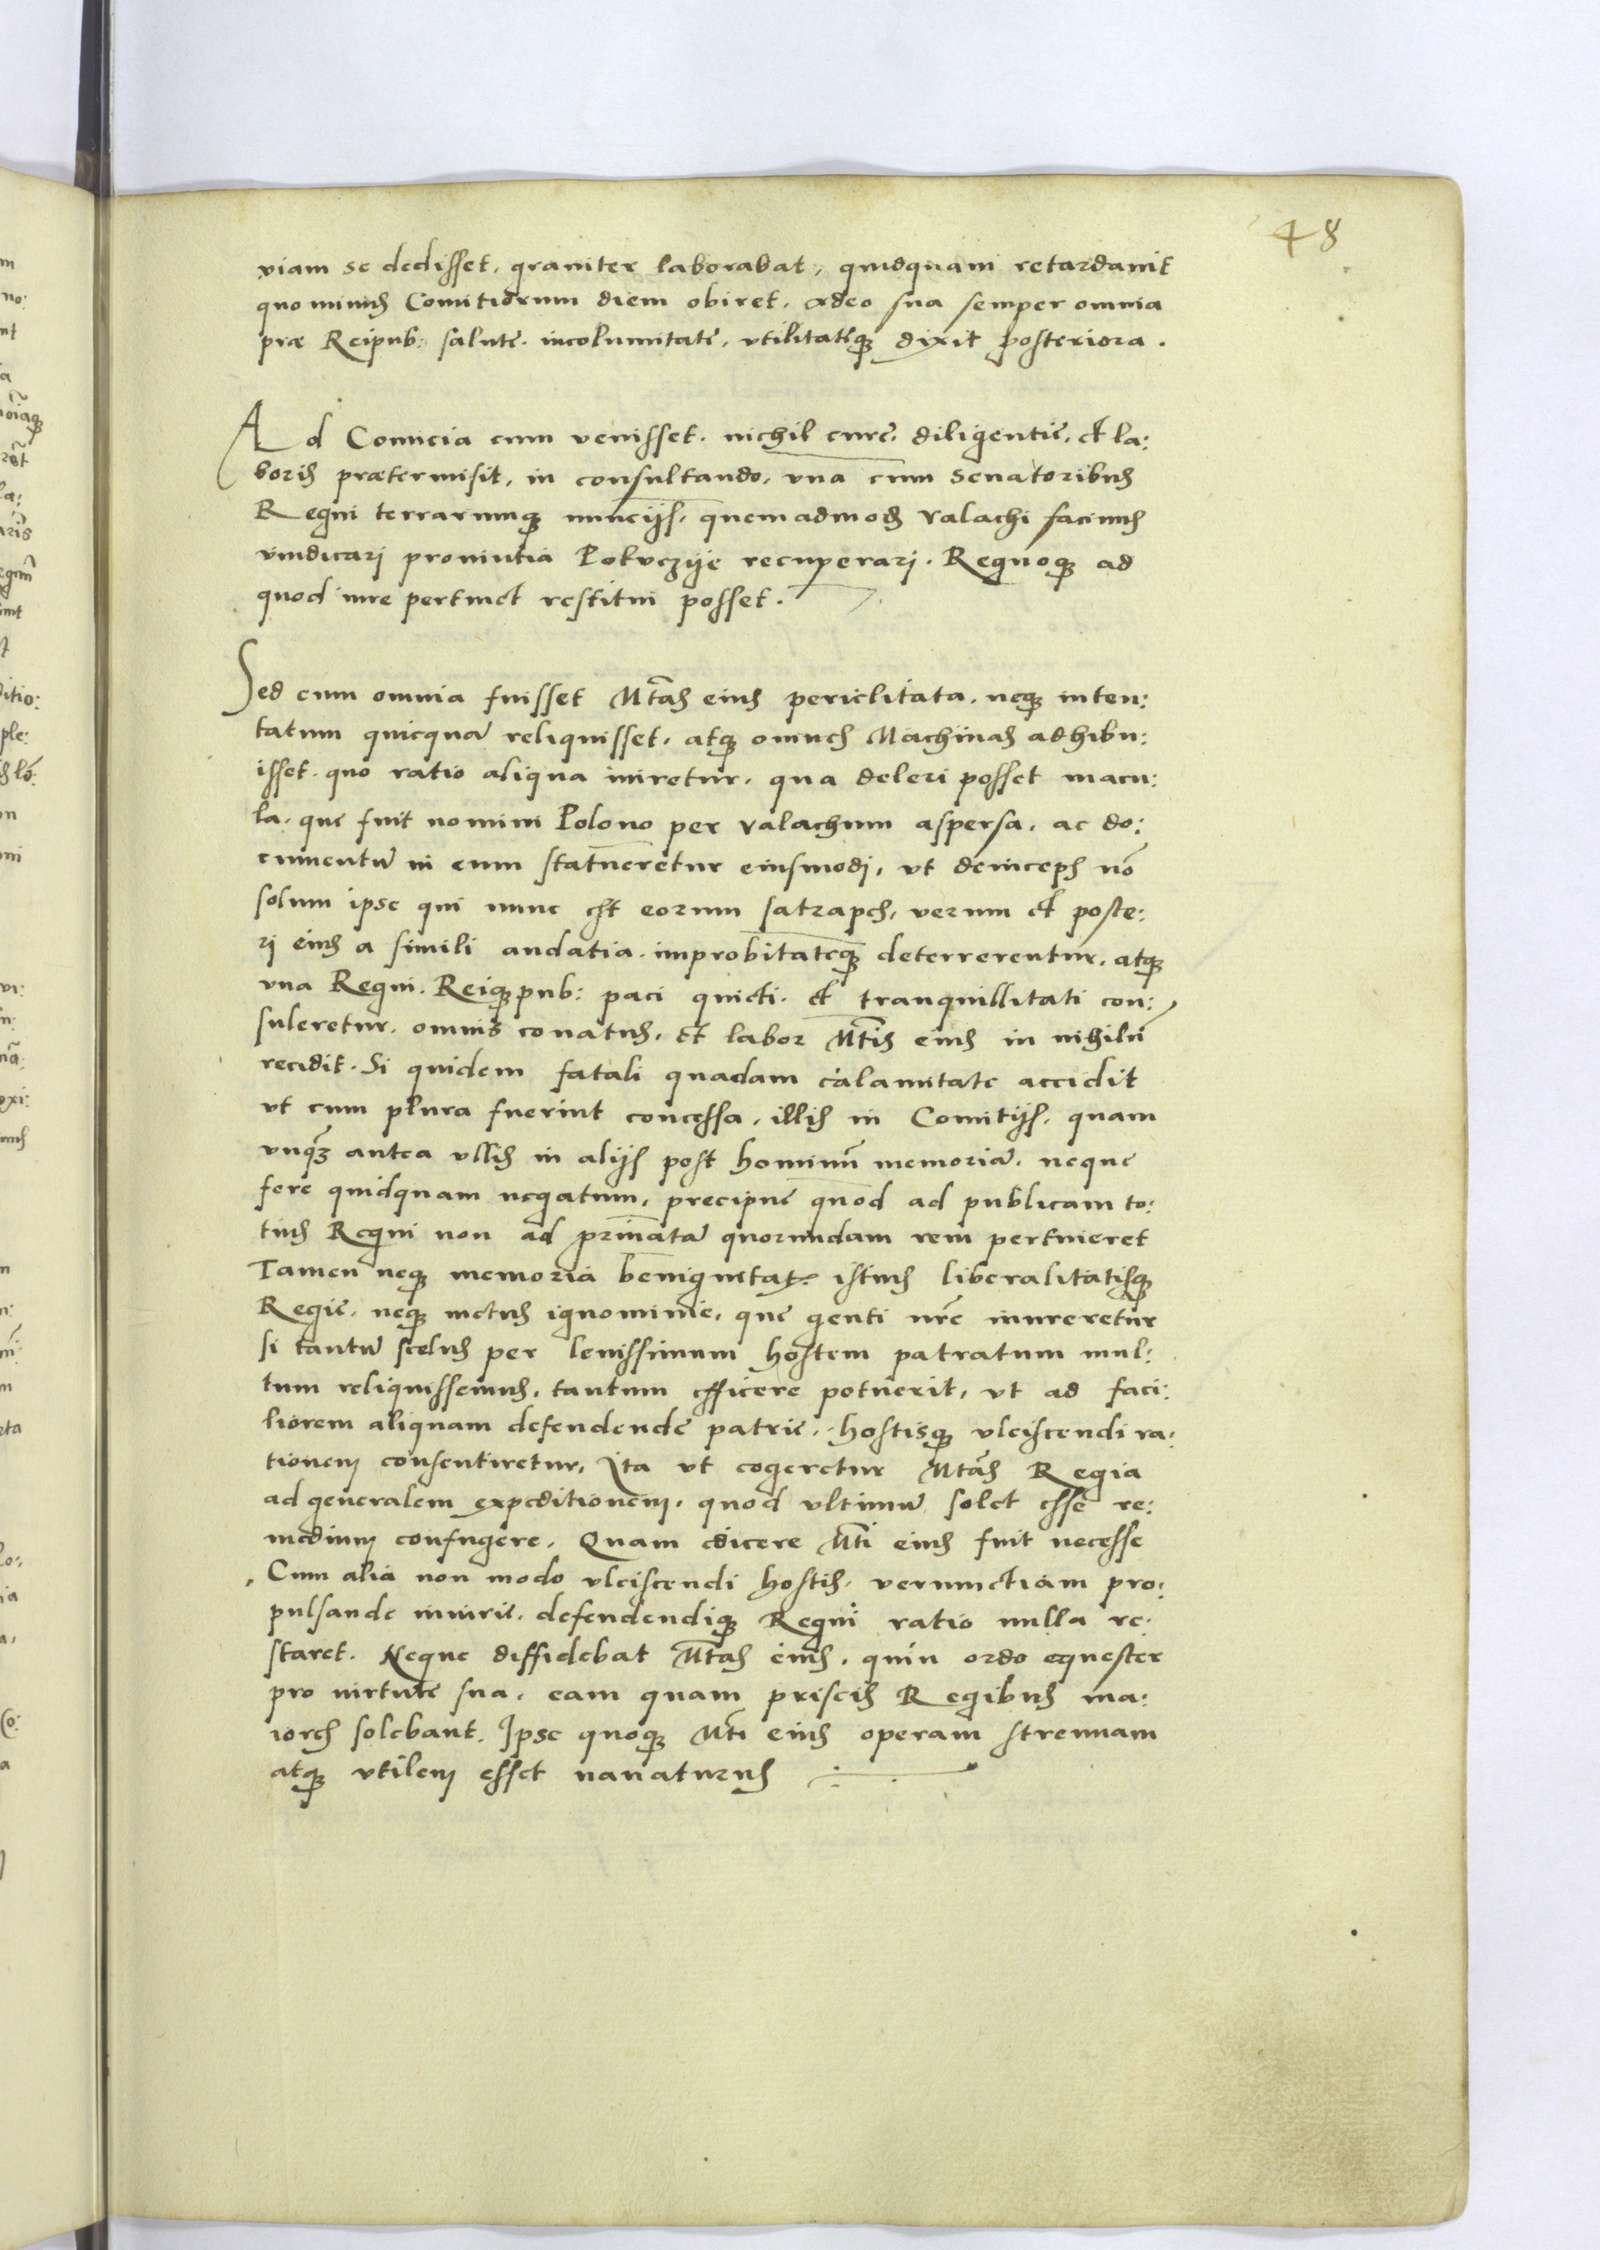 48
viam se dedisset, graviter laborabat, quidquam retardavit
quo minus Comitiorum diem obiret. adeo sua semper omnia
præ Reipub: salute. incolumitate, utilitateq̃ dixit posteriora.
Ad Comicia cum venisset. nichil cure. diligentie, et la:
boris prætermisit, in consultando, una cum Senatoribus
Regni terrarumq̃ nuncijs, quemadmodũ Valachi facinus
vindicari provintia Pokuczije recuperari. Regnoq̃ ad
quod iure pertinet restitui posset.
Sed cum omnia fuisset Mtas eius periclitata. neq̃ inten:
tatum quicquã reliquisset, atq̃ omnes Machinas adhibu:
isset. quo ratio aliqua iniretur, qua deleri posset macu:
la, que fuit nomini Polono per Valachum aspersa, ac do:
cumentũ in eum statueretur eiusmodi, ut deinceps nõ
solum ipse qui nunc est eorum satrapes, verum et poste:
ri eius a simili audatia. improbitateq̃ deterrerentur, atq̃
una Regni. Reiq̃ pub: paci quieti. et tranquillitati con:
suleretur. omnis conatus, et labor Mtis eius in nihilũ
recidit. Si quidem fatali quadam calamitate accidit
ut cum plura fuerint concessa, illis in Comitijs, quam
unq̃ antea ullis in alijs post hominũ memoriã. neque
fere quidquam negatum, precipue quod ad publicam to:
tius Regni non ad privatã quorundam rem pertineret
Tamen neq̃ memoria benignitatis istius liberalitatisq̃
Regie, neq̃ metus ignominie, que genti nr̃e inureretur
si tantũ scelus per levissimum hostem patratum inul:
tum reliquissemus, tantum efficere potuerit, ut ad faci:
liorem aliquam defendende patrie, hostisq̃ ulciscendi ra:
tionem consentiretur, Ita ut cogeretur Mtas Regia
ad generalem expeditionem, quod ultimũ solet esse re:
medium confugere. Quam edicere Mti eius fuit necesse
Cum alia non modo ulciscendi hostis. verumetiam pro:
pulsande iniurie. defendendiq̃ Regni ratio nulla re:
staret. Neque diffidebat Mtas eius. quin ordo equester
pro virtute sua, eam quam priscis Regibus ma:
iores solebant, Ipse quoq̃ Mti eius operam strenuam
atq̃ utilem esset navaturus